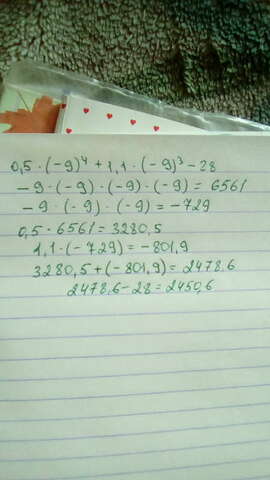 0,5 · (-9)⁴ + 1,1 · (-9)³ - 28
-9 · (-9) · (-9) · (-9) = 6561
-9 · (-9) · (-9) = -729
0,5 · 6561 = 3280,5
1,1 · (-729) = -801,9
3280,5 + (-801,9) = 2478,6
2478,6 - 28 = 2450,6